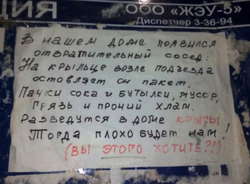 ЦИЯ
ООО «ЖЭУ-5»
Диспетчер 3-36-94
В нашем доме появился
отвратительный сосед.
На крыльце возле подъезда
оставляет он пакет.
Пачки сока и бутылки, мусор,
грязь и прочий хлам.
Разведутся в доме крысы
Тогда плохо будет нам!
(Вы этого хотите?!!)